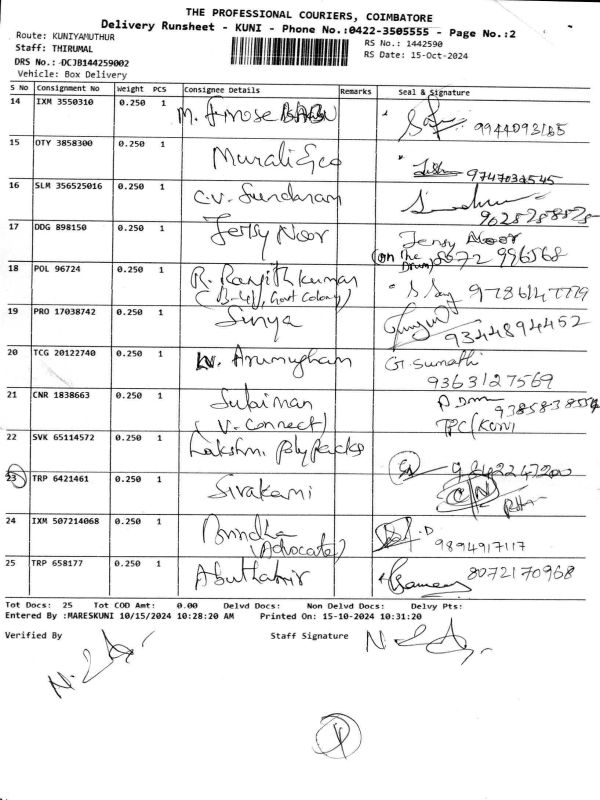 THE PROFESSIONAL COURIERS, COIMBATORE
Delivery Runsheet - KUNI - Phone No.:0422-3505555 - Page No.:2
Route: KUNIYAMUTHUR
RS No.: 1442590
Staff: THIRUMAL
RS Date: 15-Oct-2024
DRS No.: DCJB144259002
Vehicle: Box Delivery
S No Consignment No Weight PCS Consignee Details Remarks Seal & Signature
14 IXM 3550310 0.250 1 M.
15 OTY 3858300 0.250 1 Murali &co 9747034545
16 SLM 356525016 0.250 1 C.V. Sundaram
17 DDG 898150 0.250 1 Jersy Noor Jersy Noor
(on The
18 POL 96724 0.250 1 R. Ranjith kumar
(B-41, Govt Colony)
19 PRO 17038742 0.250 1 Surya 9344894452
20 TCG 20122740 0.250 1 Arumugham G. Sumathi
9363127569
21 CNR 1838663 0.250 1 Sulaiman
(V. Connect)
22 SVK 65114572 0.250 1 Lakshmi Poly Packs
23 TRP 6421461 0.250 1 Sivakami
24 IXM 507214068 0.250 1 Brindha
(Advocate) 9894917117
25 TRP 658177 0.250 1 Abuthahir 8072170968
Tot Docs: 25 Tot COD Amt: 0.00 Delvd Docs: Non Delvd Docs: Delvy Pts:
Entered By :MARESKUNI 10/15/2024 10:28:20 AM Printed On: 15-10-2024 10:31:20
Verified By Staff Signature